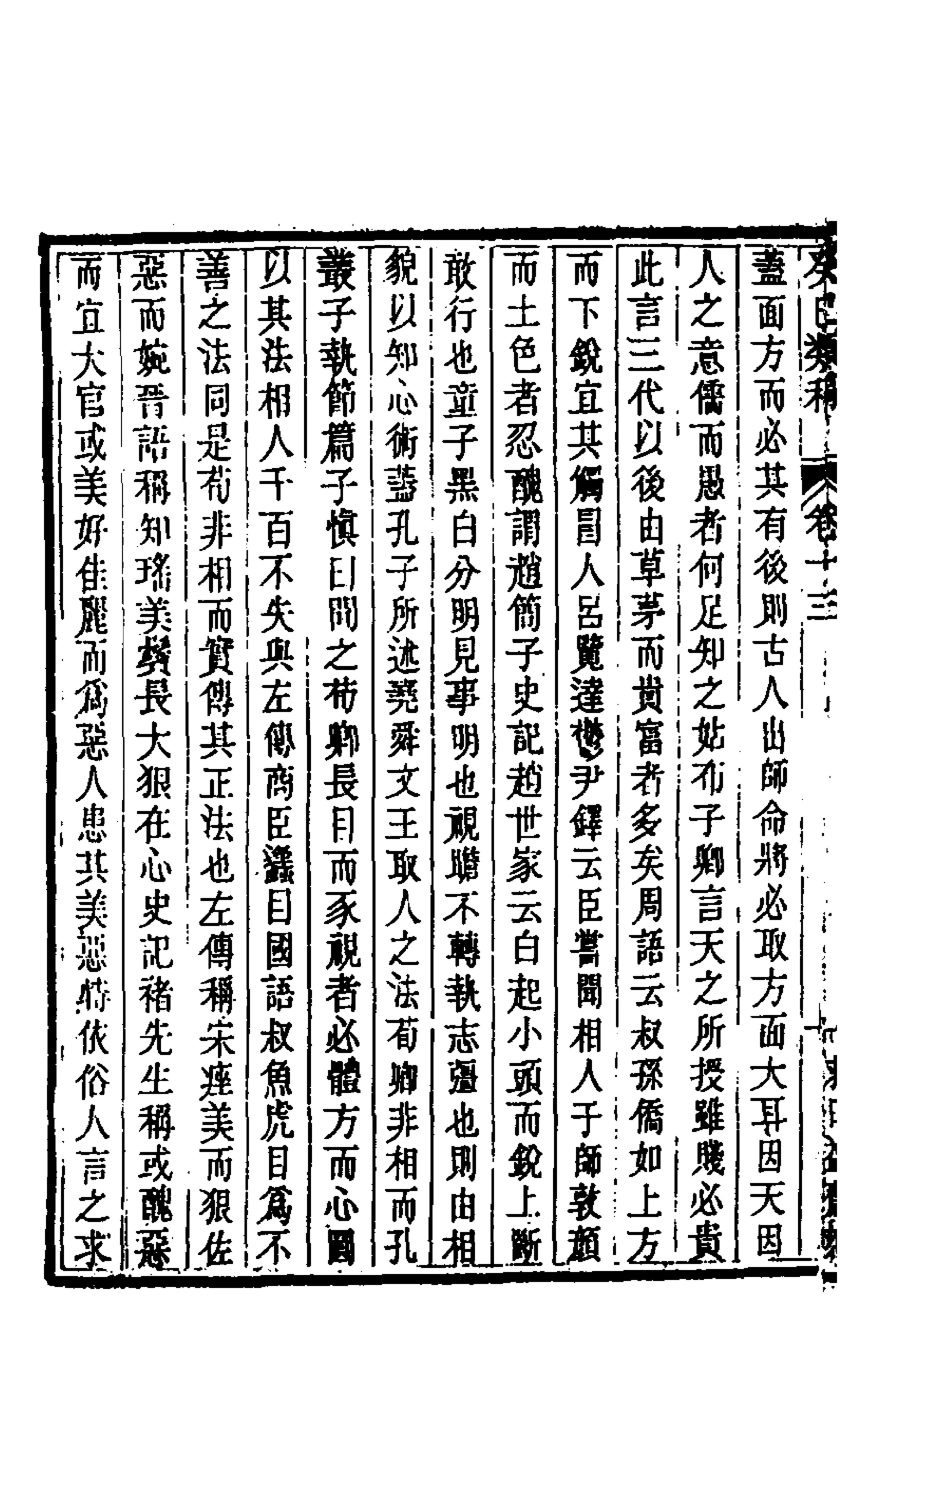 癸巳類稿 卷十三
蓋面方而必其有後則古人出師命將必取方面大耳因天因
人之意儒而愚者何足知之姑布子卿言天之所授雖賤必貴
此言三代以後由草茅而貴富者多矣周語云叔孫僑如上方
而下銳宜其觸冒人呂覽達鬱尹鐸云臣嘗聞相人于師敦顔
而土色者忍醜謂趙簡子史記趙世家云白起小頭而銳上斷
敢行也童子黑白分明見事明也視瞻不轉執志彊也則由相
貌以知心術蓋孔子所述堯舜文王取人之法荀卿非相而孔
叢子執節篇子慎曰聞之荀卿長目而豕視者必體方而心圓
以其法相人千百不失與左傳商臣蠭目國語叔魚虎目爲不
善之法同是荀非相而實傳其正法也左傳稱宋痤美而狠佐
惡而婉晉語稱知瑤美鬢長大狠在心史記褚先生稱或醜惡
而宜大官或美好佳麗而爲惡人患其美惡特依俗人言之求